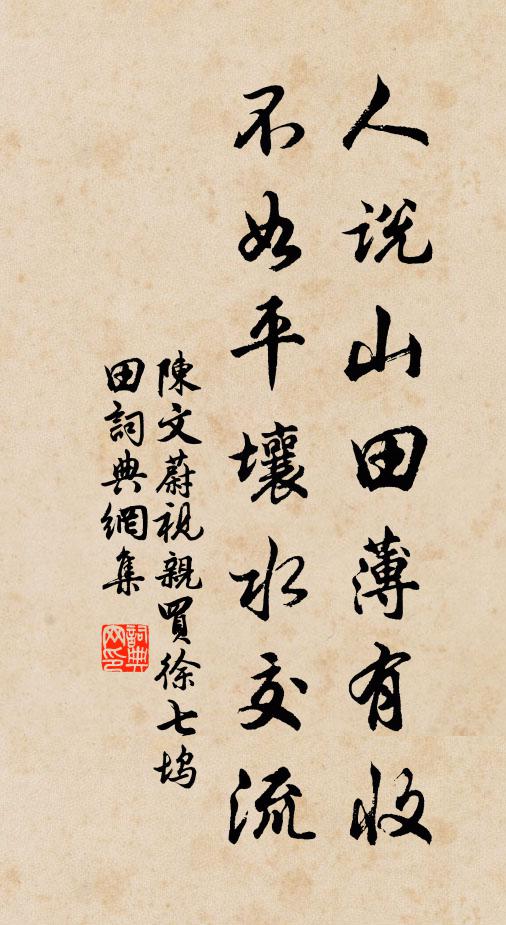 人说山田薄有收
不如平壤水交流
陳文蔚視親買徐七塢
田詞典網集
詞典
网印